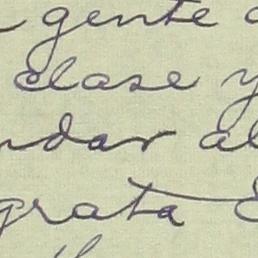 gente
clase y
ndar al
grata